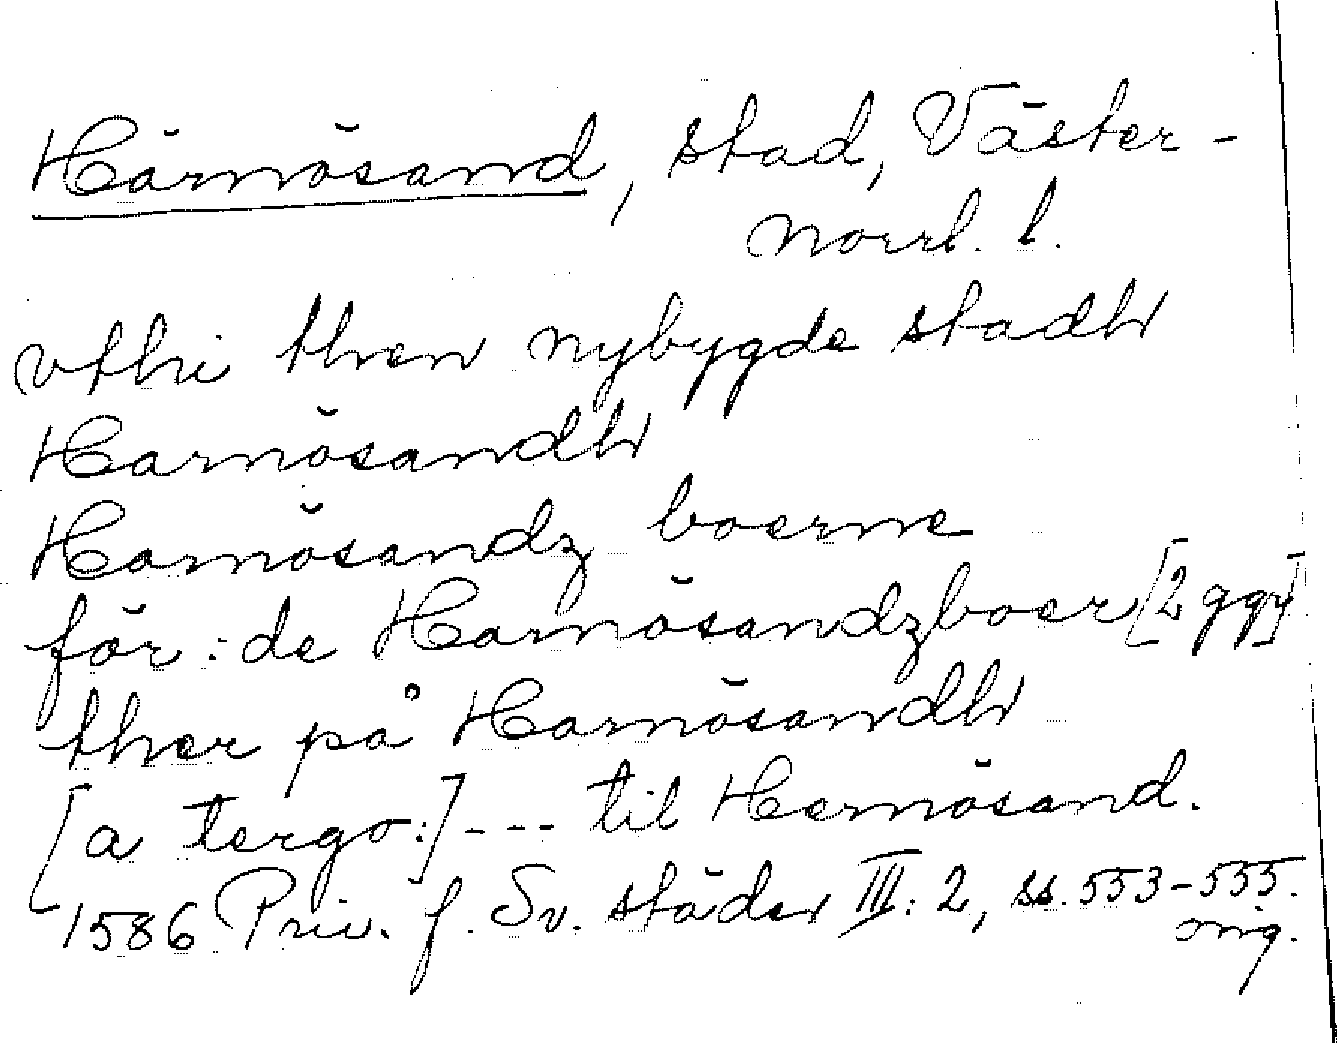 Härnösand, stad, Väster-
norrl. l.
vthi then nybygde stadh
Harnösandh
Harnösandz boerne
för: de Harnösandzboer [2 ggr]
ther på Harnösandh
[a tergo:] --- til Hernösand.
1586 Priv. f. Sv. städer III: 2, ss. 553-555.
orig.